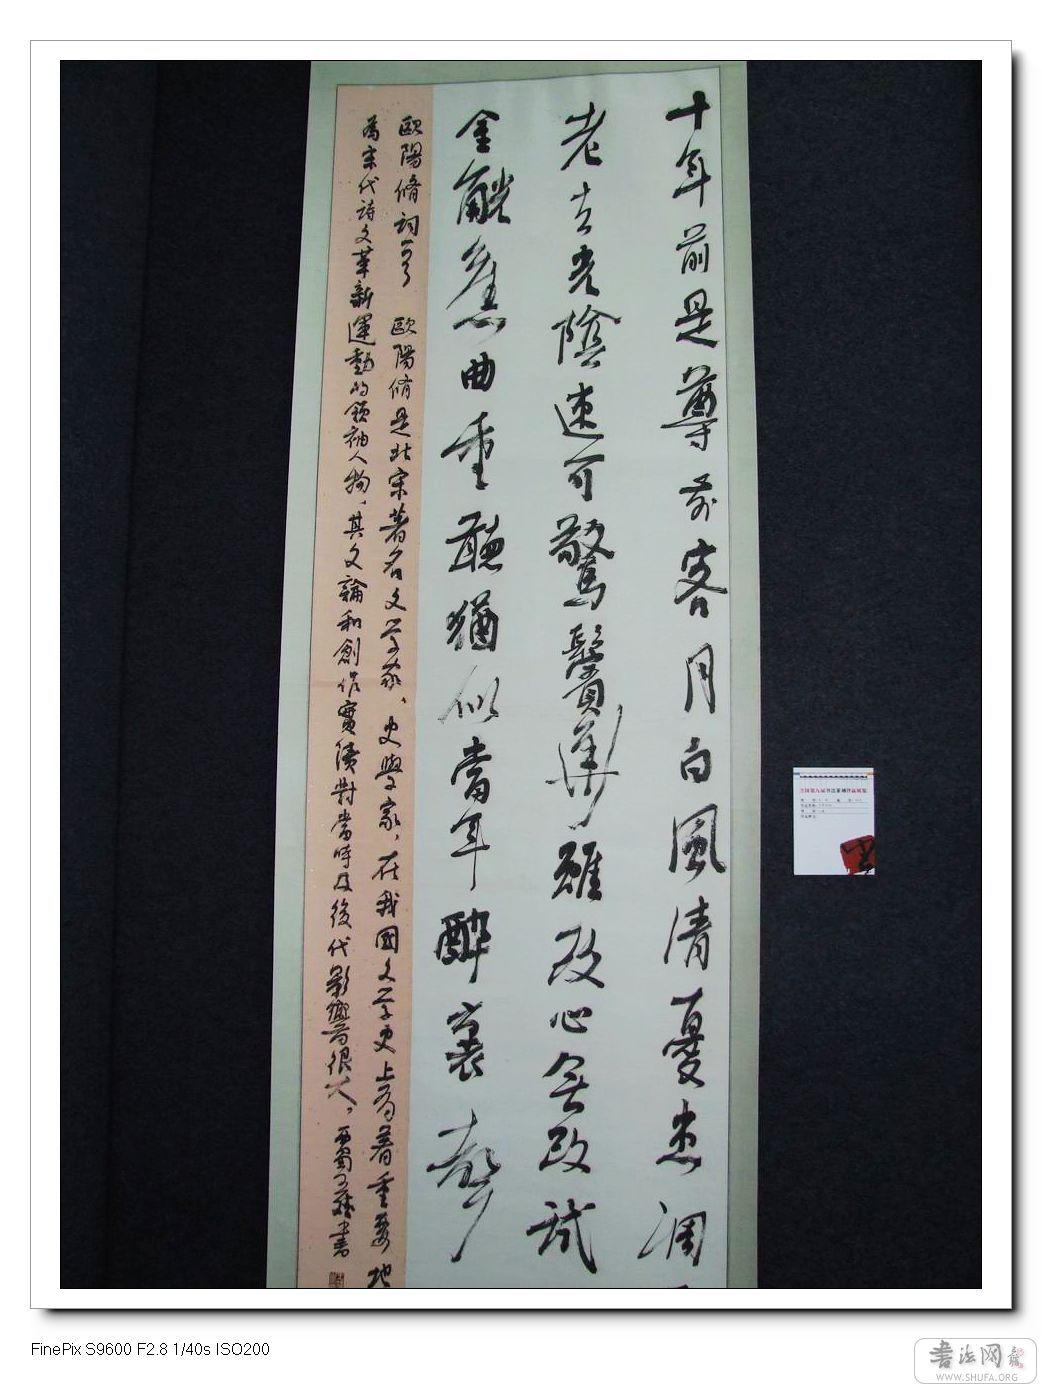 十年前是尊前客月白風清憂患凋
老去光陰速可驚鬢華雖改心無改試
金觥舊曲重聽猶似當年醉裏聲
歐陽脩詞一首 歐陽脩是北宋著名文学家、史學家,在我國文学史上有着重要地
為宋代詩文革新運動的領袖人物,其文論和創作實績對當時及後代影響很大。西蜀書
全国第九届书法篆刻作品展览
FinePix S9600 F2.8 1/40s ISO200
书法网
WWW.SHUFA.ORG